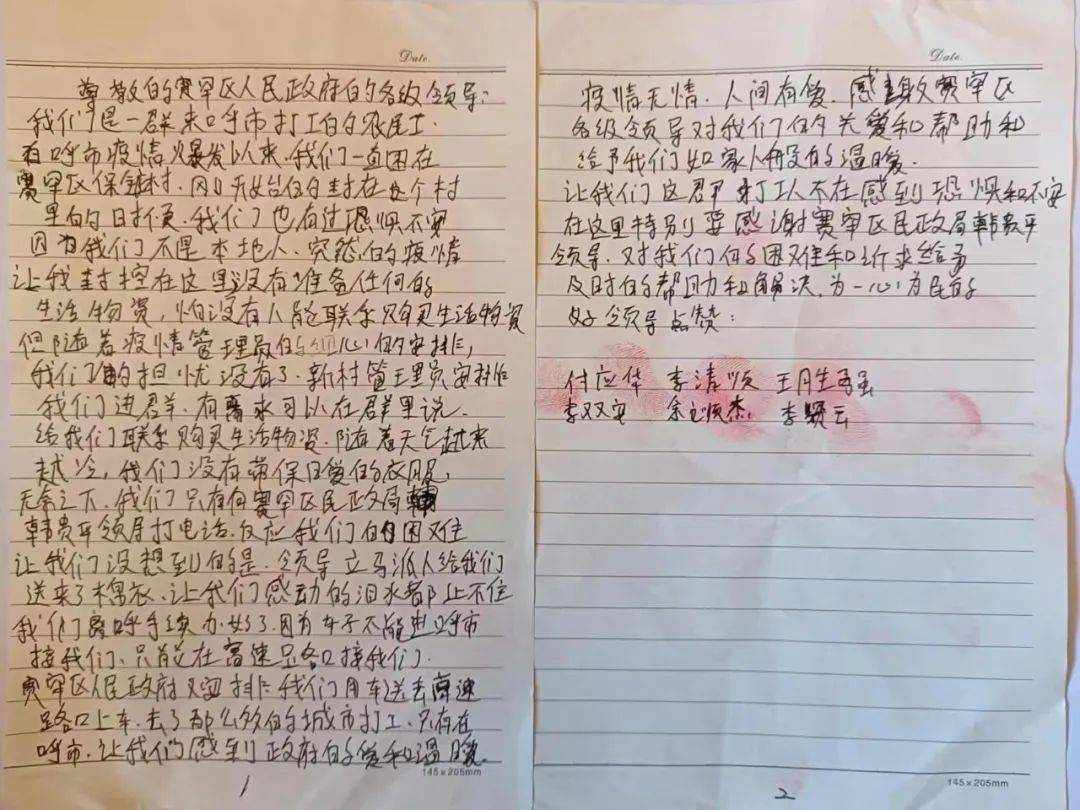 Date.
尊敬的赛罕区人民政府的各级领导:
我们是一群来呼市打工的农民工.
在呼市疫情爆发以来.我们一直困在
赛罕区保全村.因此无奈的封在这个村
里的时候.我们也有过恐惧不安
因为我们不是本地人.突然的疫情
让我封控在这里没有准备任何的
生活物资,怕没有人能联系购买生活物资
但随着疫情管理员的细心的安排,
我们的担忧没有了.新村管理员安排
我们进群.有需求可以在群里说.
给我们联系购买生活物资.随着天气越来
越冷,我们没有带保暖的衣服,
无奈之下.我们只有向赛罕区民政局
韩贵平领导打电话.反应我们的困难
让我们没想到的是.领导立马派人给我们
送来了棉衣.让我们感动的泪水都止不住
我们离呼手续办好了.因为车子不能进呼市
接我们、只能在高速路口接我们.
赛罕区人民政府又安排我们用车送去高速
路口上车.去了那么多的城市打工.只有在
呼市.让我们感到政府的爱和温暖.
145×205mm
1
Date.
疫情无情.人间有爱.感谢赛罕区
各级领导对我们的关爱和帮助和
给予我们如家人般的温暖.
让我们这群打工人不在感到恐惧和不安
在这里特别要感谢赛罕区民政局韩贵平
领导.对我们的困难和诉求给予
及时的帮助和解决.为一心为民的
好领导点赞:
付应华 李清顺
李双安 李颖云
145×205mm
2